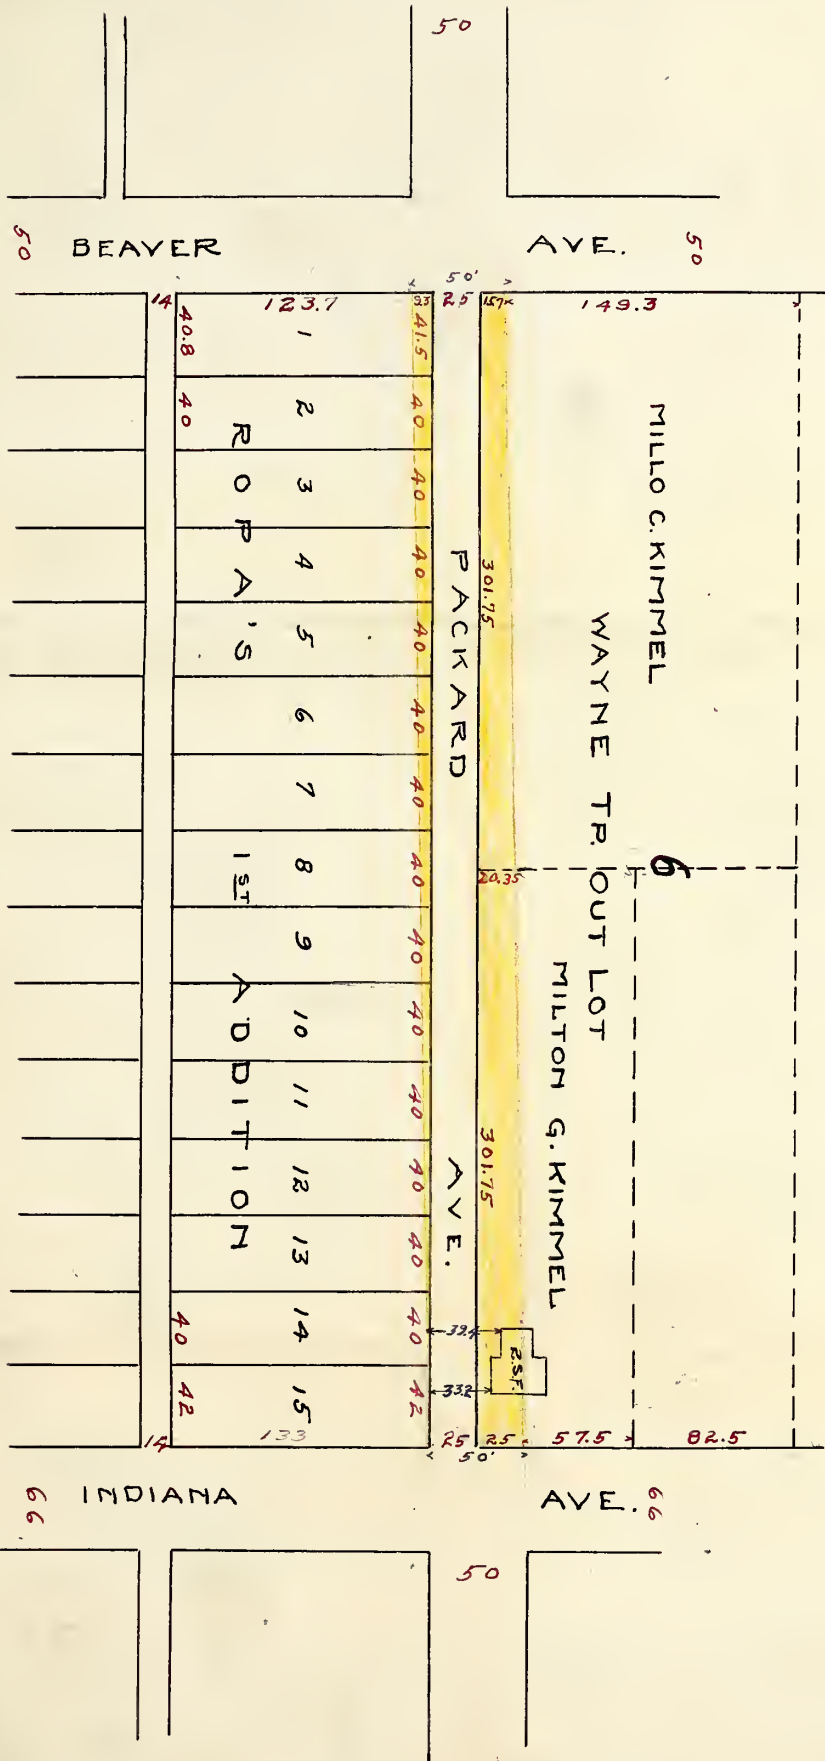 50
50 BEAVER AVE. 50
50'
14 123.7 9.3 25 15.7 149.3
40.8 1 41.5
40 2 40
3 40
4 40
5 40
6 40
7 40
8 40
9 40
10 40
11 40
12 40
13 40
40 14 40
42 15 42
ROPA'S 1ST ADDITION
PACKARD AVE.
301.75
20.35
301.75
MILLO C. KIMMEL
WAYNE TP. OUT LOT
6
MILTON G. KIMMEL
39.4
2.S.F.
33.2
14 133 25 25 57.5 82.5
50'
66 INDIANA AVE. 66
50